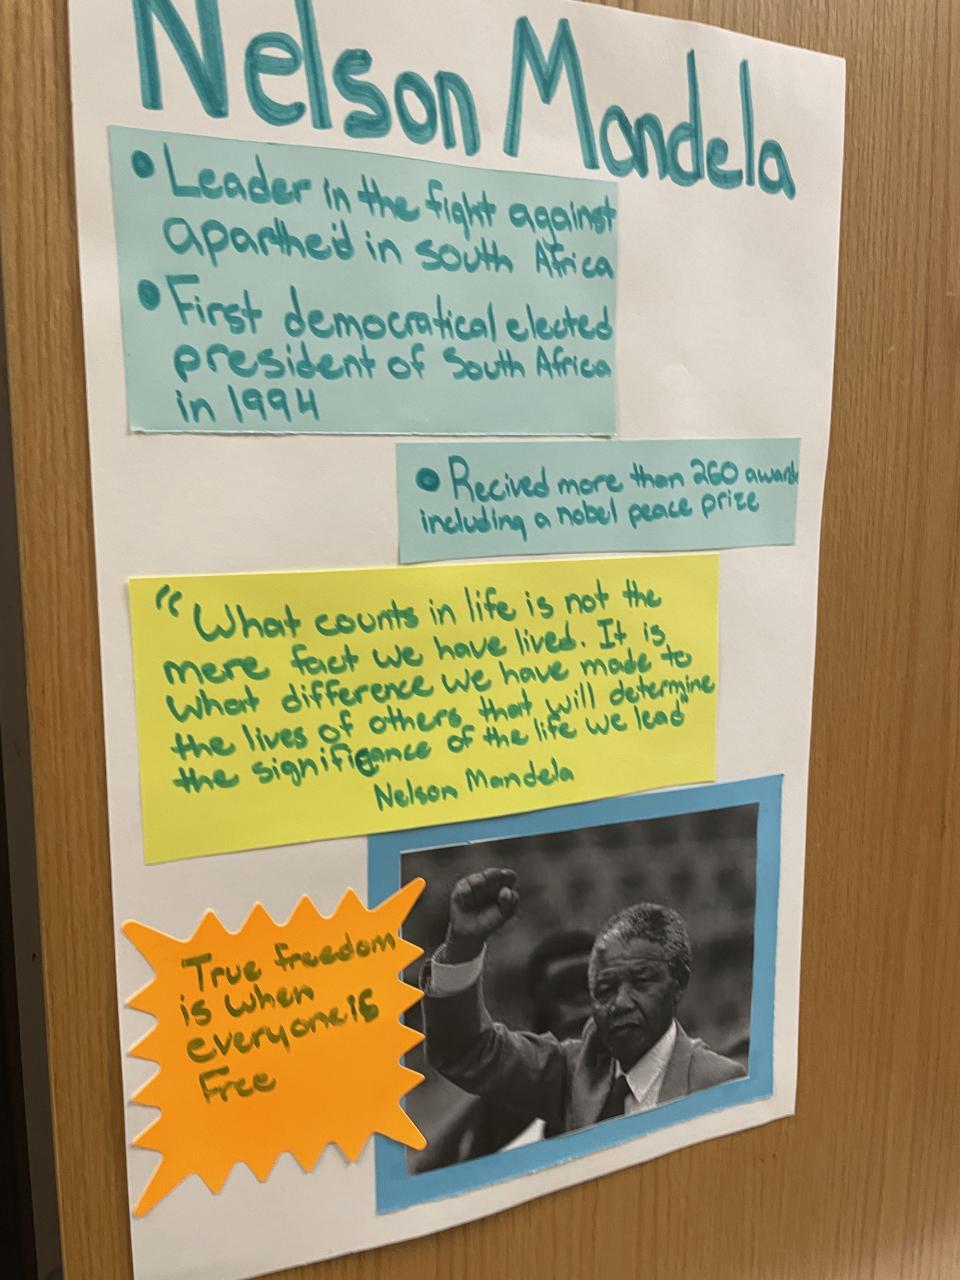 Nelson Mandela
• Leader in the fight against
apartheid in south Africa
• First democratical elected
president of South Africa
in 1994
• Recived more than 260 awards
including a nobel peace prize
"What counts in life is not the
mere fact we have lived. It is
what difference we have made to
the lives of others that will determine
the significance of the life we lead"
Nelson Mandela
True freedom
is when
everyone is
Free